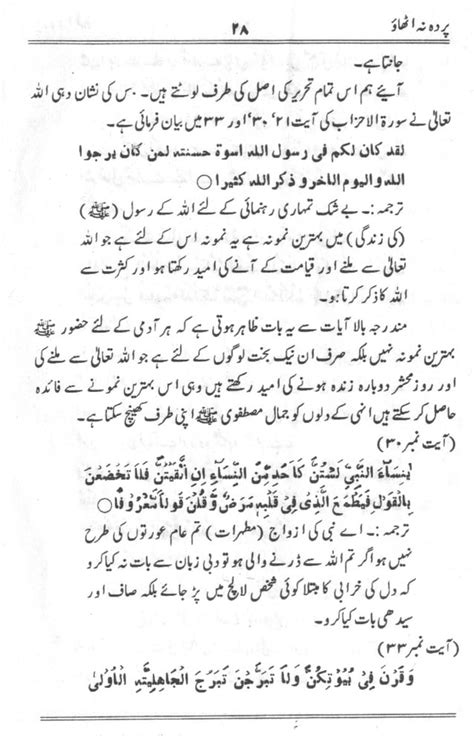 پردہ نہ اٹھاؤ ۲۸
جانتا ہے۔
آیئے ہم اس تمام تحریر کی اصل کی طرف لوٹتے ہیں۔ جس کی نشان دہی اللہ
تعالیٰ نے سورۃ الاحزاب کی آیت ۲۱، ۳۰، اور ۳۳ میں بیان فرمائی ہے۔
لقد کان لکم فی رسول اللہ اسوۃ حسنتہ لمن کان یرجوا
اللہ و الیوم الاخر و ذکر اللہ کثیرا ○
ترجمہ :۔ بے شک تمہاری رہنمائی کے لئے اللہ کے رسول (ﷺ)
(کی زندگی) میں بہترین نمونہ ہے یہ نمونہ اس کے لئے ہے جو اللہ
تعالیٰ سے ملنے اور قیامت کے آنے کی امید رکھتا ہو اور کثرت سے
اللہ کا ذکر کرتا ہو۔
مندرجہ بالا آیات سے یہ بات ظاہر ہوتی ہے کہ ہر آدمی کے لئے حضور ﷺ
بہترین نمونہ نہیں بلکہ صرف ان نیک بخت لوگوں کے لئے ہے جو اللہ تعالیٰ سے ملنے کی
اور روز محشر دوبارہ زندہ ہونے کی امید رکھتے ہیں وہی اس بہترین نمونے سے فائدہ
حاصل کر سکتے ہیں انہی کے دلوں کو جمال مصطفوی ﷺ اپنی طرف کھینچ سکتا ہے۔
(آیت نمبر ۳۰)
یٰنِسَآءَ النَّبِیِّ لَسْتُنَّ کَاَحَدٍ مِّنَ النِّسَآءِ اِنِ اتَّقَیْتُنَّ فَلَا تَخْضَعْنَ
بِالْقَوْلِ فَیَطْمَعَ الَّذِیْ فِیْ قَلْبِہٖ مَرَضٌ وَّ قُلْنَ قَوْلًا مَّعْرُوْفًا ○
ترجمہ :۔ اے نبی کی ازواج (مطہرات) تم عام عورتوں کی طرح
نہیں ہو اگر تم اللہ سے ڈرنے والی ہو تو دبی زبان سے بات نہ کیا کرو
کہ دل کی خرابی کا مبتلا کوئی شخص لالچ میں پڑ جائے بلکہ صاف اور
سیدھی بات کیا کرو۔
(آیت نمبر ۳۳)
وَ قَرْنَ فِیْ بُیُوْتِکُنَّ وَ لَا تَبَرَّجْنَ تَبَرُّجَ الْجَاھِلِیَّتِہِ الْاُوْلٰی